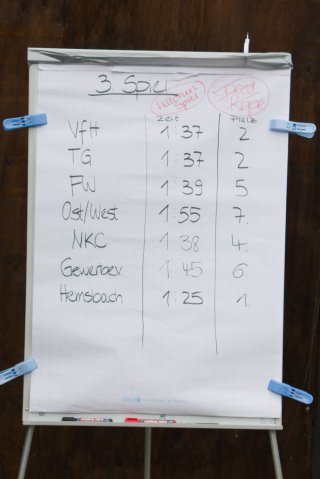 3 Spiel
Zeit Platz
VfH 1:37 2
TG 1:37 2
FW 1:39 5
Ost/West 1:55 7.
NKC 1 38 4.
Gewerbev. 1 45 6
Hemsbach 1:25 1.